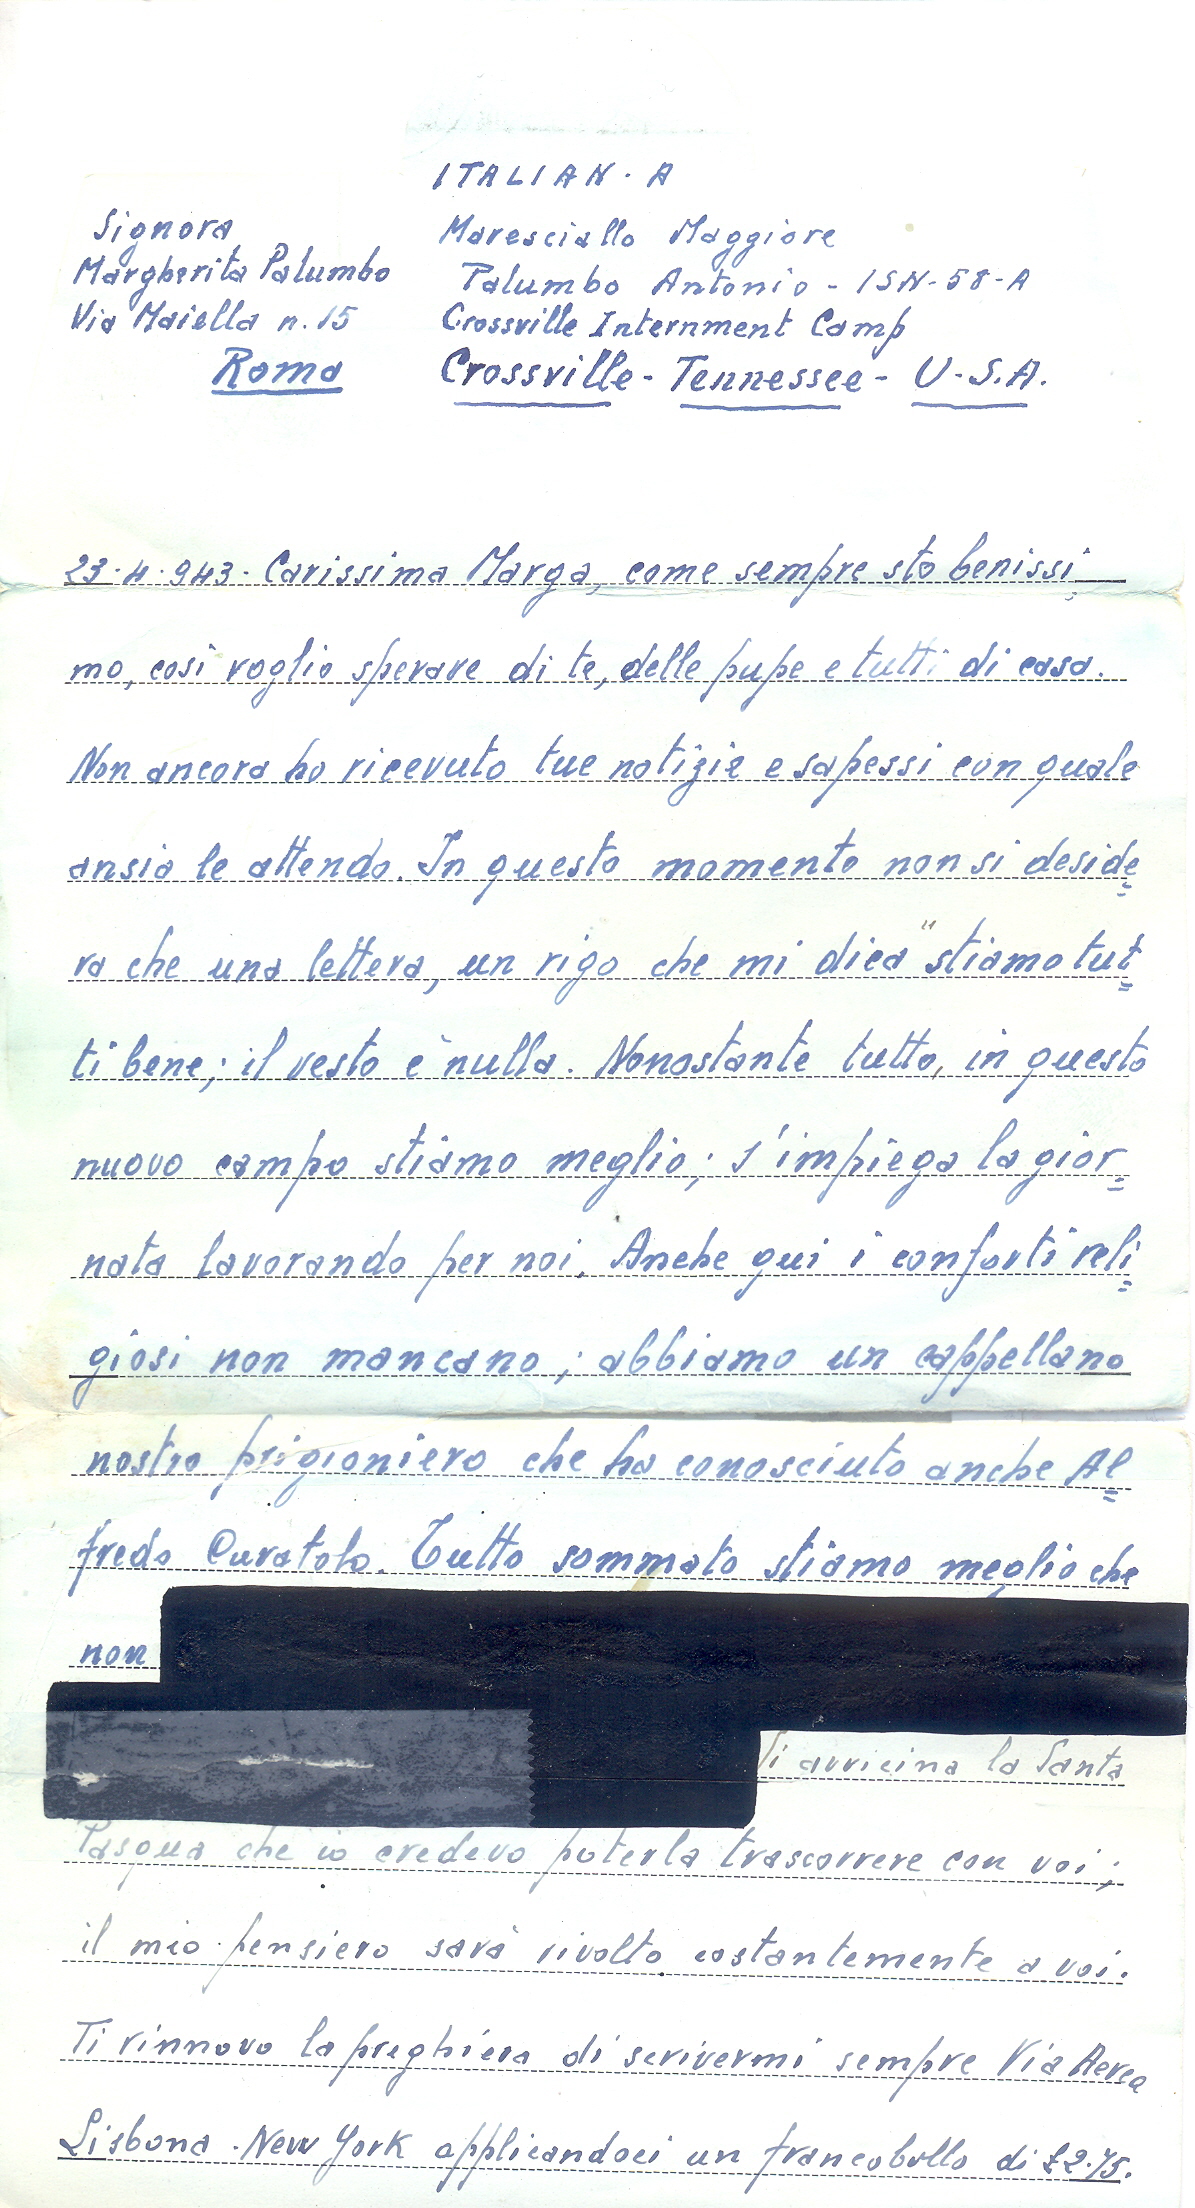 ITALIAN - A
Signora
Margherita Palumbo
Via Maiella n. 15
Roma
Maresciallo Maggiore
Palumbo Antonio - ISN-58-A
Crossville Internment Camp
Crossville - Tennessee - U.S.A.
23-4-943- Carissima Marga, come sempre sto benissi
mo, così voglio sperare di te, delle pupe e tutti di casa.
Non ancora ho ricevuto tue notizie e sapessi con quale
ansia le attendo. In questo momento non si deside=
ra che una lettera, un rigo che mi dica "stiamo tut=
ti bene; il resto è nulla. Nonostante tutto, in questo
nuovo campo stiamo meglio; s'impiega la gior=
nata lavorando per noi. Anche qui i conforti reli=
giosi non mancano; abbiamo un cappellano
nostro prigioniero che ha conosciuto anche Al=
fredo Curatolo. Tutto sommato stiamo meglio che
non
Si avvicina la Santa
Pasqua che io credevo poterla trascorrere con voi;
il mio pensiero sarà rivolto costantemente a voi.
Ti rinnovo la preghiera di scrivermi sempre Via Aerea
Lisbona - New York applicandoci un francobollo di £2.75.